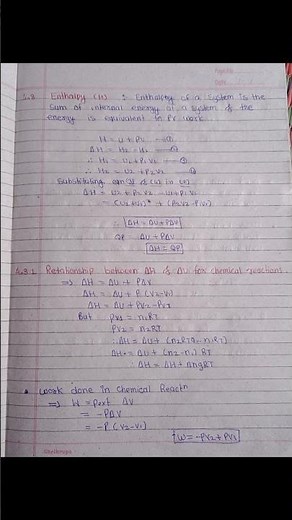 Enthalpy (H) : Enthalpy of a System is the
Sum of internal energy of a system & the
energy is equivalent to PV work
H = U + PV
ΔH = H2 - H1
∴ H1 = U1 + P1V1
∴ H2 = U2 + P2V2
Substituting
ΔH = U2 + P2V2 - U1 + P1V1
+ (P2V2 - P1V1)
∴ ΔH = ΔU + PΔV
QP = ΔU + PΔV
ΔH = QP
Relationship between ΔH & ΔU for chemical reactions
⇒ ΔH = ΔU + PΔV
ΔH = ΔU + P (V2-V1)
ΔH = ΔU + PV2 - PV1
But PV1 = n1RT
PV2 = n2RT
∴ ΔH = ΔU + (n2RT - n1RT)
ΔH = ΔU + (n2-n1) RT
∴ ΔH = ΔH + ΔngRT
• Work done in Chemical Reactn
⇒ W = -Pext ΔV
= -PΔV
= -P (V2-V1)
W = -PV2 + PV1